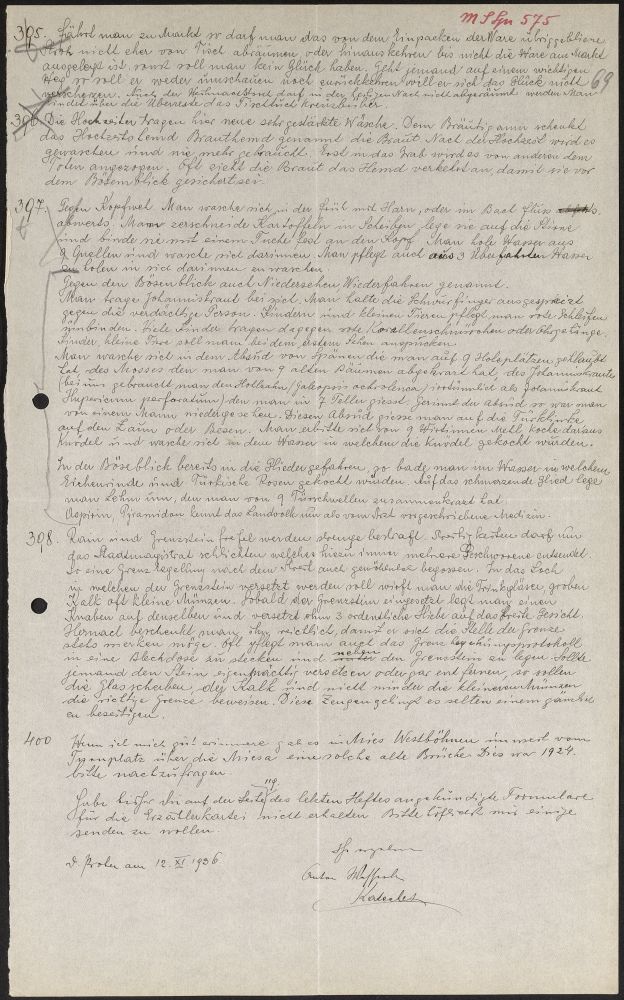 M S Gn 575
69
395. Fährt man zu Markt so darf man das von dem Einpacken der Ware übriggebliebene
Stroh nicht eher vom Tisch abräumen oder hinauskehren bis nicht die Ware am Markt
ausgelegt ist, sonst soll man kein Glück haben. Geht jemand auf einem wichtigen
Weg so soll er weder umschauen noch zurückkehren will er sich das Glück nicht
verscherzen. Auch der Weihnachtstisch darf in der heiligen Nacht nicht abgeräumt werden. Man
über die Überreste das Tischtuch kreuzüber.
396. Die Hochzeiter tragen hier neue sehr gestärkte Wäsche. Dem Bräutigam schenkt
das Hochzeitshemd Brauthemd genannt die Braut. Nach der Hochzeit wird es
gewaschen und nie mehr gebraucht. Erst in das Grab wird es von anderen dem
Toten angezogen. Oft zieht die Braut das Hemd verkehrt an, damit sie vor
dem Bösem blick gesichert sei.
397. Gegen Kopfweh. Man wasche sich in der früh mit Harn, oder im Bach fluss
abwerts. Man zerschneide Kartoffeln in Scheiben, lege sie auf die Stirne
und binde sie mit einem Tuche fest an den Kopf. Man hole Wasser aus
9 Quellen und wasche sich darinnen. Man pflegt auch aus 3 Wasser
zu holen in sich darinnen zu waschen.
Gegen den Bösenblick auch Niedersehen Wiederfahren genannt.
Man trage Johanniskraut bei sich. Man halte die Schwurfinger ausgespreizt
gegen die verdächtige Person. Kindern und kleinen Tieren pflegt man rote Schleifen
umbinden. Viele Kinder tragen dagegen rote Korallenschnürchen oder Ohrgehinge.
Kinder, kleine Tiere soll man bei dem erstem Sehen anspucken.
Man wasche sich in dem Absud von Spänen die man auf 9 Holzplätzen geklaubt
hat, des Mosses den man von 9 alten Bäumen abgekrazt hat, des Johanniskrauts
(bei uns gebraucht man den Hollzahn (Galeopsis ochroleuca) irrtümlich als Johanniskraut
Hypericum perforatum) den man in 7 Teller giesst. Gerinnt der Absud so war man
von einem Mann niedergesehen. Diesen Absud giesse man auf die Türklinke
auf den Zaun oder Besen. Man erbitte sich von 9 Wirtinnen Mehl, koche daraus
Knödel und wasche sich in dem Wasser in welchem die Knödel gekocht wurden.
Ist der Böseblick bereits in die Glieder gefahren, so bade man im Wasser in welchem
Eichenrinde und Türkische Rosen gekocht wurden. Auf das schmerzende Glied lege
man Lehm um, den man von 9 Türschwellen zusammenkrazt hat.
Aspirin, Pyramidon kennt das Landvolk nur als vom Arzt vorgeschriebene Medizin.
398. Rain und Grenzstein frefel werden strenge bestraft. Streitigkeiten darf nur
das Stadtmagistrat schlichten welches hiezu immer mehrere Geschworene entsendet.
So eine Grenz Regellung nach dem Streit auch gewöhnlich begossen. In das Loch
in welchem der Grenzstein versetzt werden soll wirft man die Trinkgläser, groben
Kalk oft kleine Münzen. Sobald der Grenzstein eingesetzt legt man einen
Knaben auf denselben und versetzt ihm 3 ordentliche Hiebe auf das breite Gesicht.
Hernach beschenkt man ihn reichlich, damit er sich die Stelle der Grenze
stets merken möge. Oft pflegt man auch das Grenz begehungsprotokoll
in eine Blechdose zu stecken und neben den Grenzstein zu legen. Sollte
jemand den Stein eigenmächtig versetzen oder gar entfernen, so sollen
die Glasscherben, der Kalk und nicht minder die kleineren Münzen
die richtige Grenze beweisen. Diese Zeugen gelingt es selten einem ganz
zu beseitigen.
400 Wenn ich mich gut erinnere gab es in Mies Westböhmen unweit vom
Turnplatz über die Miesa eine solche alte Brücke. Dies war 1924.
bitte nachzufragen.
Habe bisher die auf der Seite 119 des letzten Heftes angekündigte Formulare
für die Erzählerkartei nicht erhalten. Bitte höflichst mir einige
senden zu wollen.
D. Proben am 12. XI. 1936.
Ihr ergebener
Anton